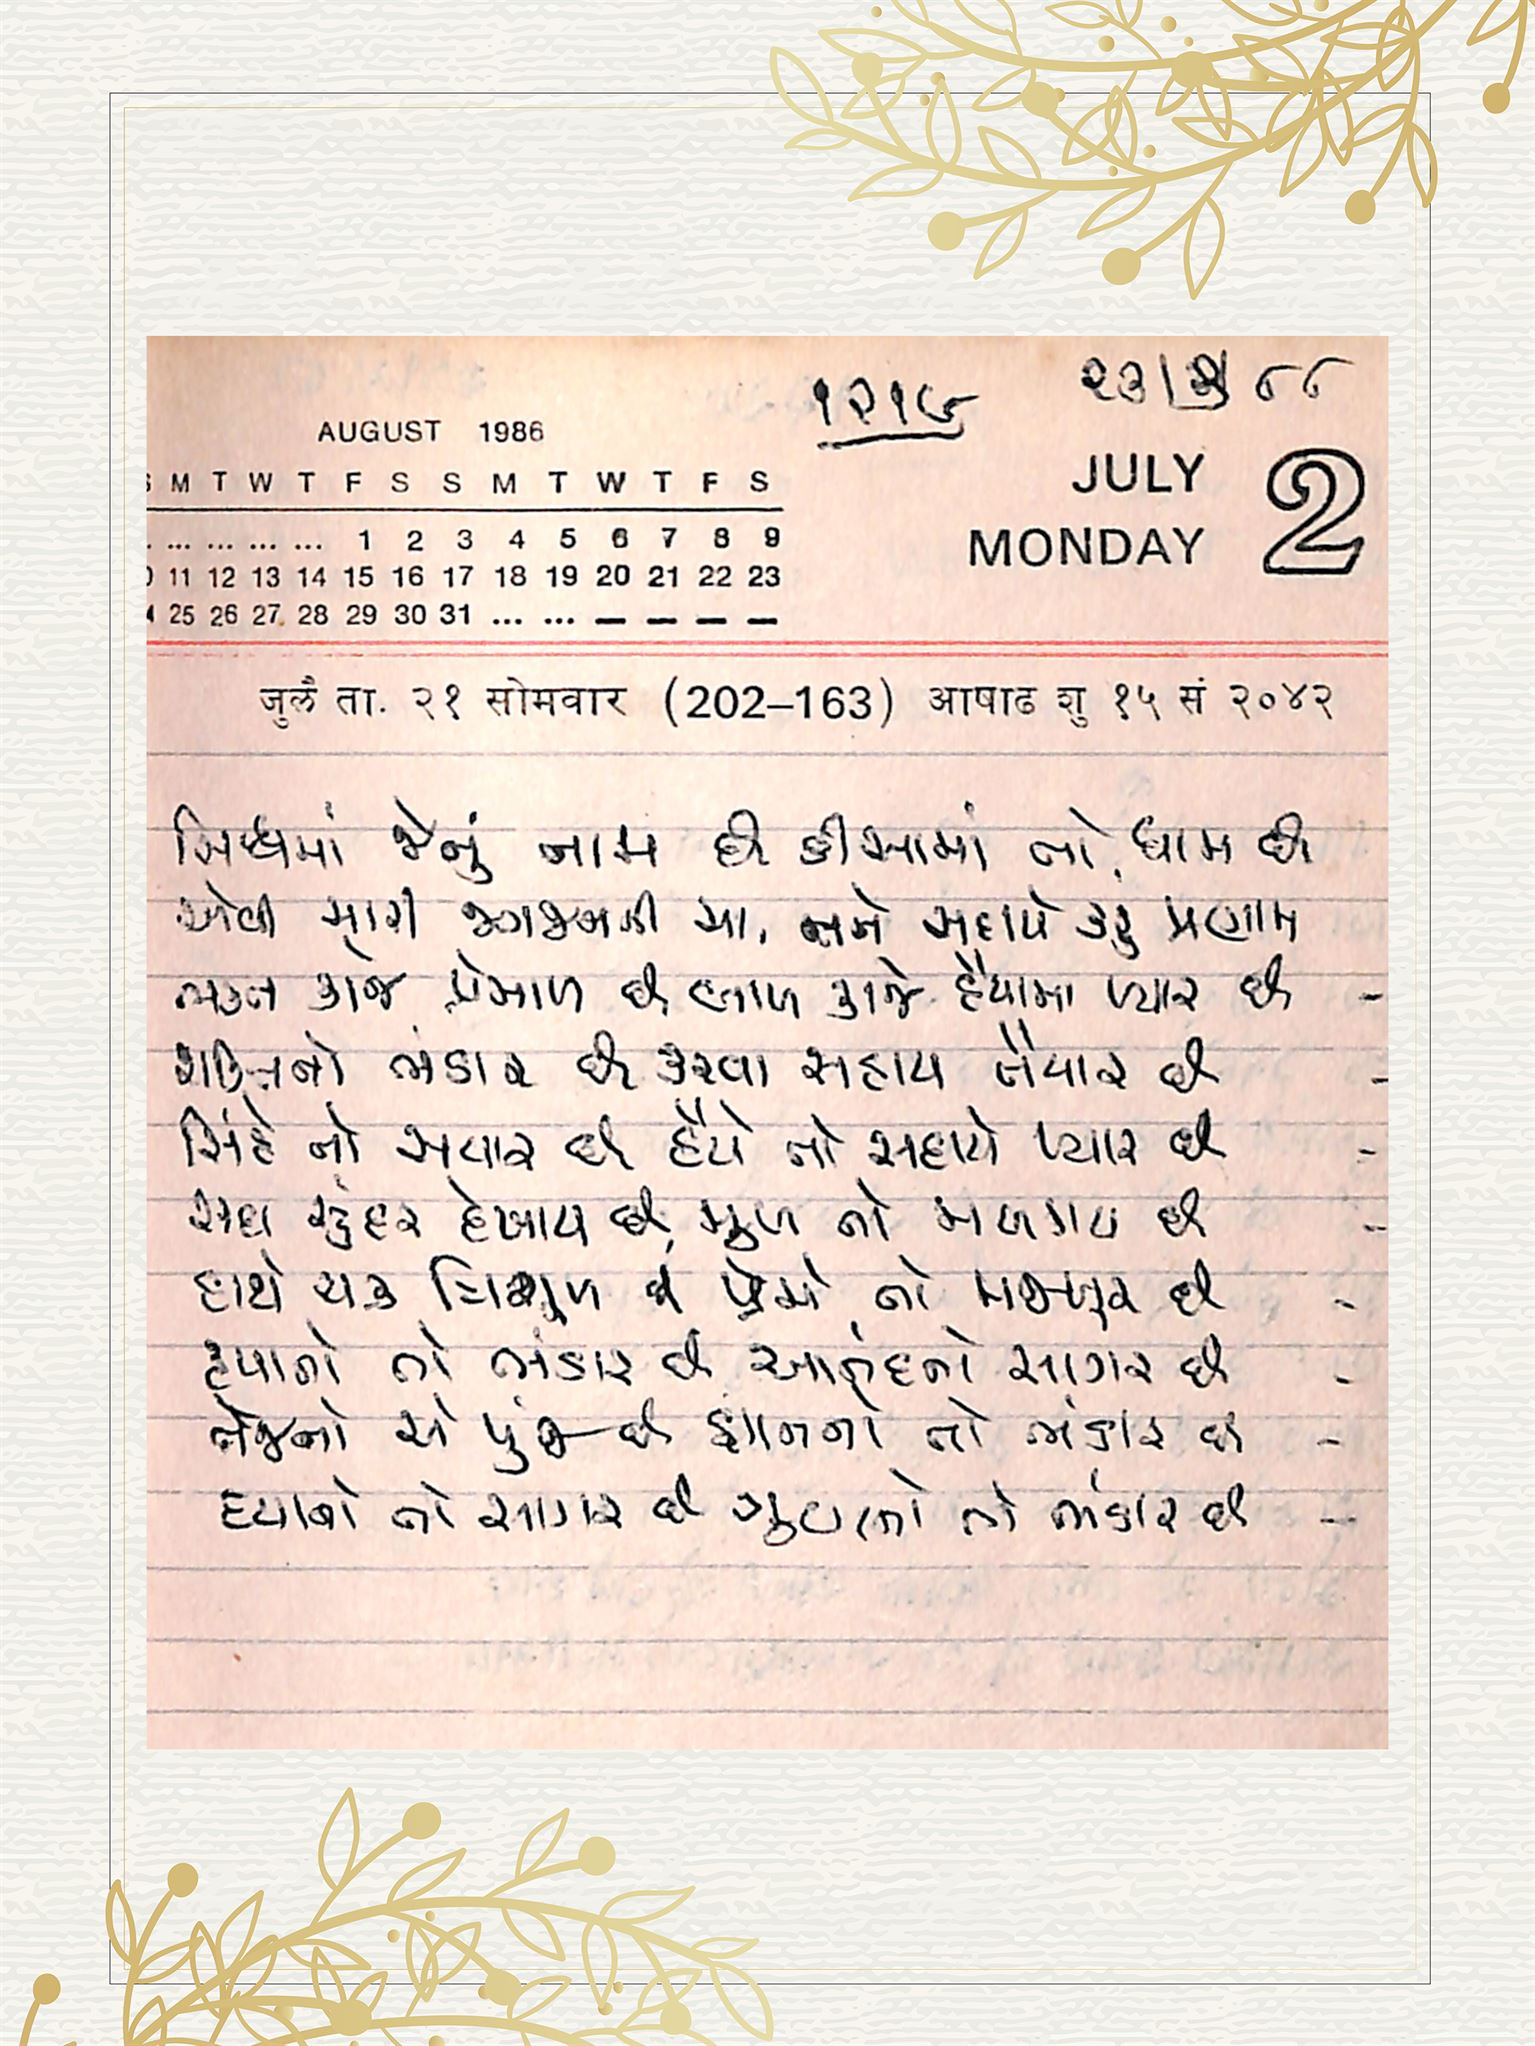 ૧૨૧૭ ૨૩/૩/૮૮
AUGUST 1986
JULY 2
MONDAY
S M T W T F S S M T W T F S
... ... ... ... 1 2 3 4 5 6 7 8 9
11 12 13 14 15 16 17 18 19 20 21 22 23
25 26 27 28 29 30 31 ... ... — — — —
जुलै ता. २१ सोमवार (202–163) आषाढ शु १५ सं २०४२
વિશ્વમાં જેનું નામ છે ડીસામાં તો ધામ છે
એવી મારી જગજનની મા, તમને સદાયે કરું પ્રણામ
ભક્ત કાજે પ્રેમાળ છે, બાળ કાજે હૈયામાં પ્યાર છે -
શક્તિનો ભંડાર છે કરવા સહાય તૈયાર છે -
સિંહે તો સવાર છે હૈયે તો સદાયે પ્યાર છે -
સદા સુંદર દેખાય છે, મુખ તો મલકાય છે -
હાથે ચક્ર ત્રિશુળ છે પ્રેમે તો મજબુર છે -
હૈયાનો તો ભંડાર છે આનંદનો સાગર છે -
તેજનો એ પુંજ છે જ્ઞાનનો તો ભંડાર છે -
દયાનો તો સાગર છે ગુણનો તો ભંડાર છે -